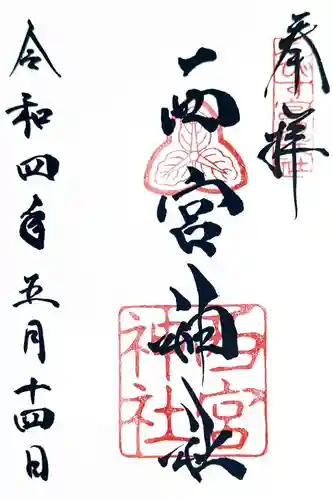 奉拝
西宮神社
西宮神社
令和四年五月十四日